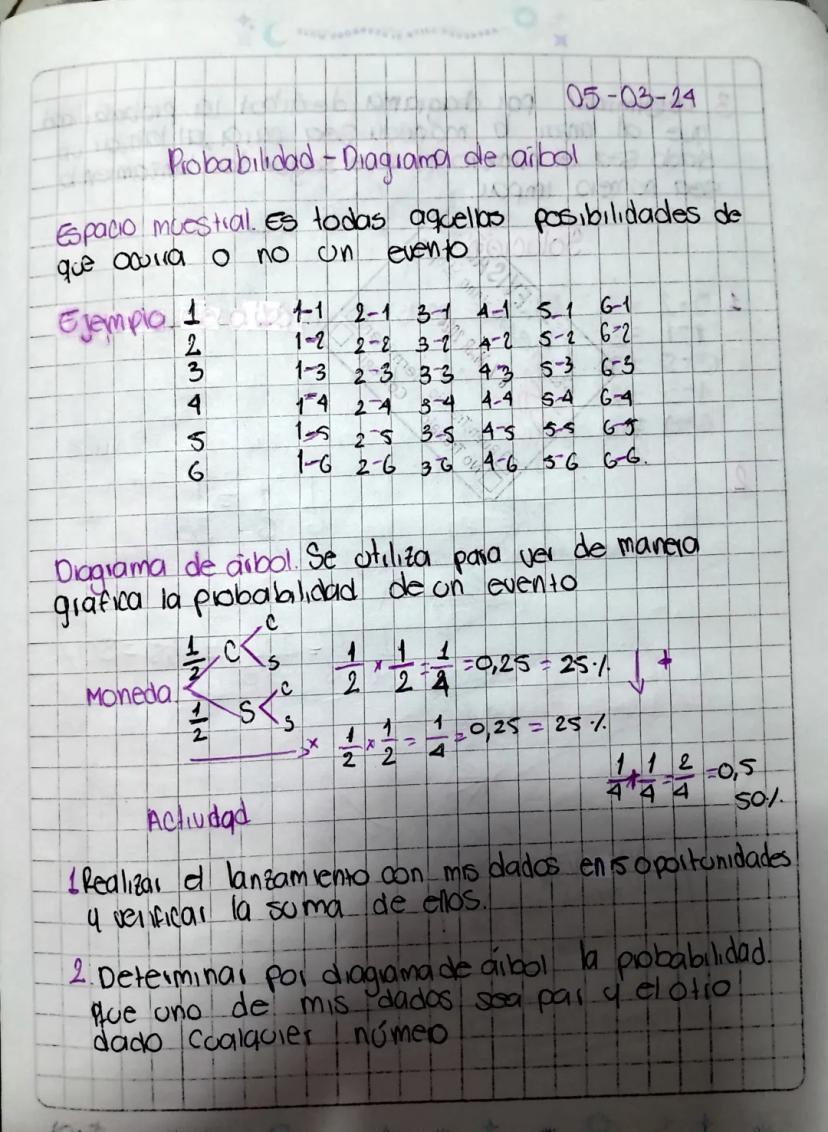 05-03-24
Probabilidad - Diagrama de árbol
Espacio muestral. Es todas aquellas posibilidades de
que ocurra o no un evento
Ejemplo 1 1-1 2-1 3-1 4-1 5-1 6-1
2 1-2 2-2 3-2 4-2 5-2 6-2
3 1-3 2-3 3-3 4-3 5-3 6-3
4 1-4 2-4 3-4 4-4 5-4 6-4
5 1-5 2-5 3-5 4-5 5-5 6-5
6 1-6 2-6 3-6 4-6 5-6 6-6.
Diagrama de árbol. Se utiliza para ver de manera
gráfica la probabalidad de un evento
Moneda
1/2 C < C
S
1/2 S < C
S
1/2 x 1/2 = 1/4 = 0,25 = 25% ↓ +
→ x 1/2 x 1/2 = 1/4 = 0,25 = 25%
1/4 + 1/4 = 2/4 = 0,5
50%.
Actividad
1 Realizar el lanzamiento con mis dados en 5 oportunidades
y verificar la suma de ellos.
2. Determinar por diagrama de árbol la probabilidad.
que uno de mis dados sea par y el otro
dado cualquier número